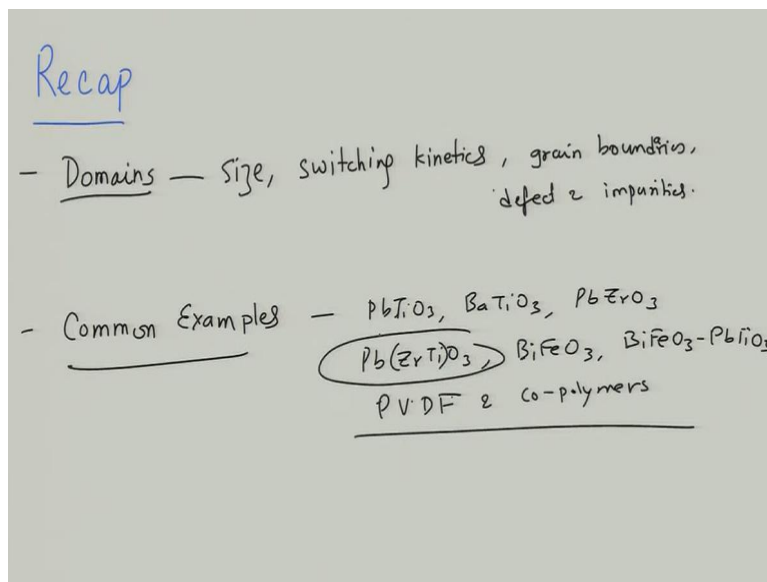 Recap
- Domains — Size, switching kinetics, grain boundries,
defect & impurities.
- Common Examples — PbTiO3, BaTiO3, PbZrO3
Pb(ZrTi)O3, BiFeO3, BiFeO3-PbTiO3
PVDF & co-polymers